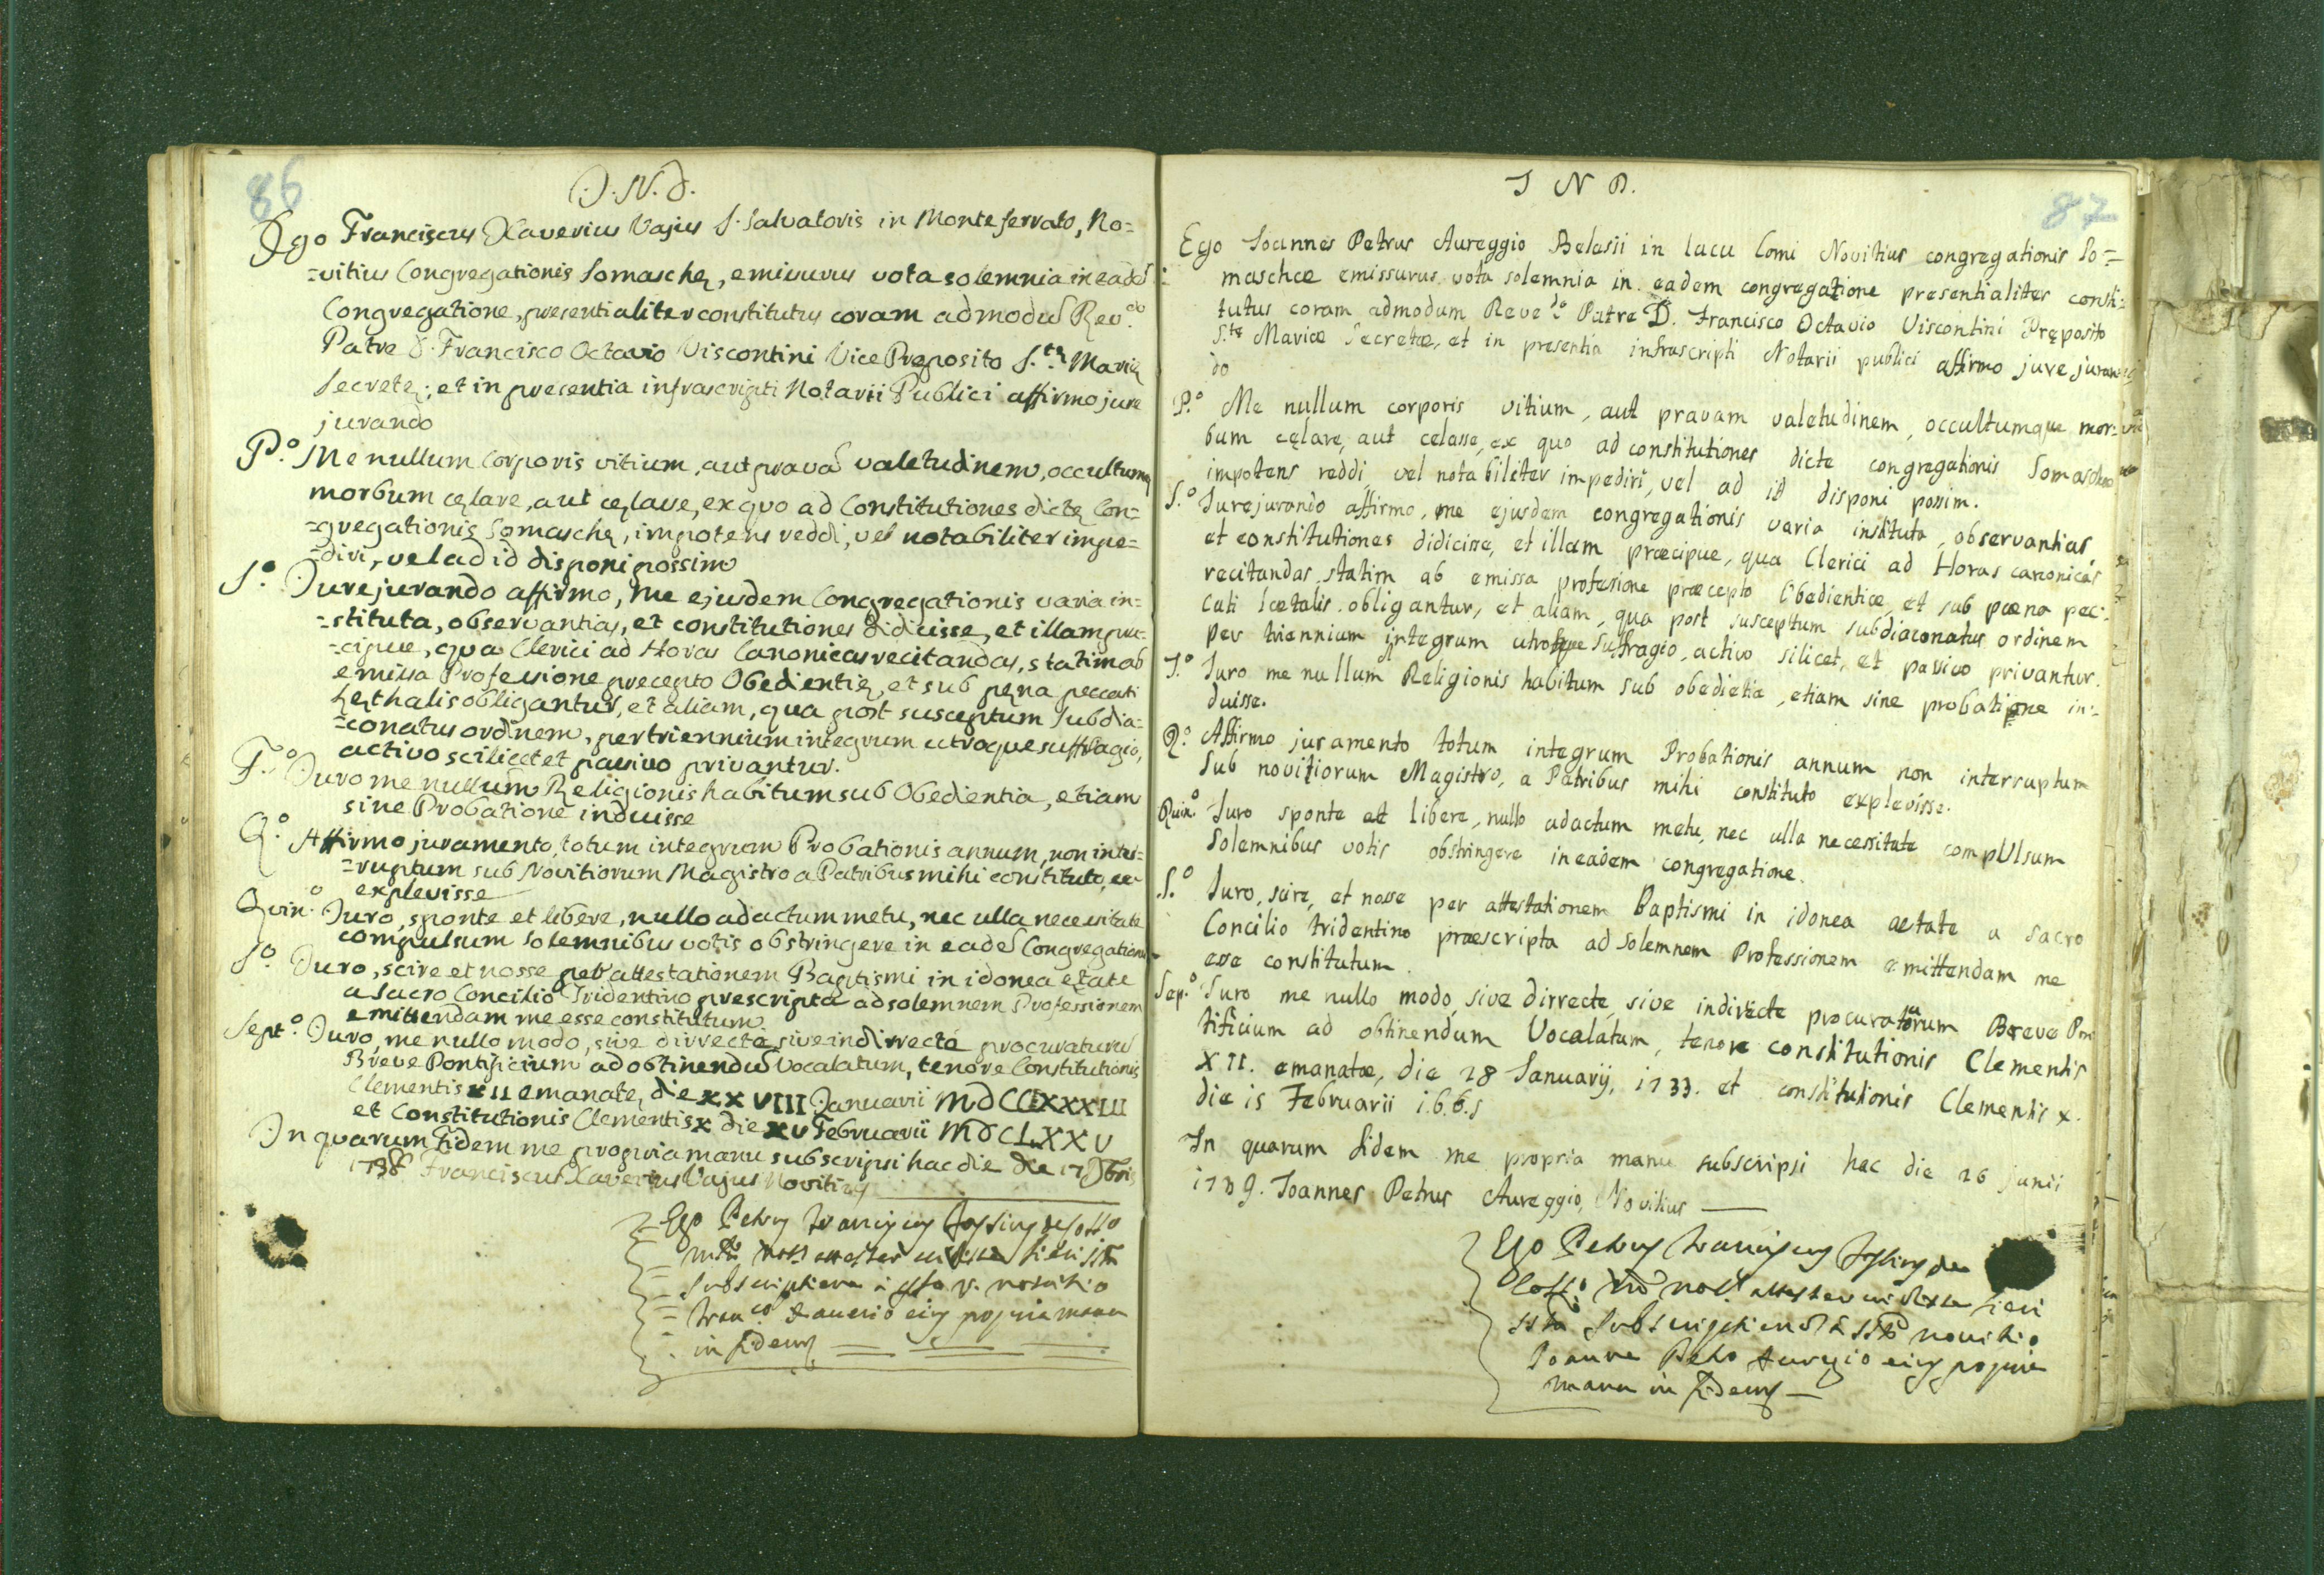 86
J. N. D.
Ego Franciscus Xaverius Vajus S. Salvatoris in Monteferrato, No=
=vitius Congregationis Somaschę, emissurus vota solemnia in eadē
Congregatione, presentialiter constitutus coram admodū Rev.do
Patre D. Francisco Octavio Viscontini Vice Preposito S.tę Marię
Secretę; et in presentia infrascripti Notarii Publici affirmo jure
jurando
P.o Me nullum Corporis vitium, aut pravā valetudinem, occultumq
morbum cęlare, aut cęlasse, ex quo ad Constitutiones dictę Con=
=gregationis Somaschę, impotens reddi, vel notabiliter impe=
=diri, vel ad id disponi possim
S.o Jurejurando affirmo, me ejusdem Congregationis varia in=
=stituta, observantias, et constitutiones didicisse, et illam prę=
=cipue, qua Clerici ad Horas Canonicas recitandas, statim ab
emissa Professione precepto Obedientię, et sub pęna peccati
Lethalis obligantur, et aliam, qua post susceptum subdia=
=conatus ordinem, per triennium integrum utroque suffragio,
activo scilicet et passivo privantur.
T.o Juro me nullum Religionis habitum sub Obedientia, etiam
sine Probatione induisse
Q.o Affirmo juramento, totum integrum Probationis annum, non inter=
=ruptum sub Novitiorum Magistro a Patribus mihi constituto,
explevisse
Quin.o Juro, sponte et libere, nullo adactum metu, nec ulla necessitate
compulsum solemnibus votis obstringere in eadē Congregatione
S.o Juro, scire et nosse per attestationem Baptismi in idonea ętate
a Sacro Concilio Tridentino prescripta ad solemnem Professionem
emittendam me esse constitutum
Sept.o Juro, me nullo modo, sive dirrecte, sive indirrecte procuraturū
Breve Pontificium ad obtinendū Vocalatum, tenore Constitutionis
Clementis XII emanate, die XXVIII Januarii MDCCIXXXIII
et Constitutionis Clementis X die XV Februarii MDCLXXV
In quarum Fidem me propria manu subscripsi hac die die 17
1738 Franciscus Xaverius Vajus Novitius
Ego Petrus Franciscus
fieri
subscriptionem a
Xaverio eius propria manu
in fidem
87
J N D.
Ego Joannes Petrus Aureggio Belasii in lacu Comi Novitius congregationis So=
maschæ emissurus vota solemnia in eadem congregatione presentialiter consti=
tutus coram admodum Reve.do Patre D. Francisco Octavio Viscontini Pręposito
S.tę Mariæ Secretæ, et in presentia infrascripti Notarii publici affirmo jure juran
do
P.o Me nullum corporis vitium, aut pravam valetudinem, occultumque mor=
bum cęlare, aut celasse, ex quo ad constitutiones dicte congregationis Somaschæ
impotens reddi, vel notabiliter impediri, vel ad id disponi possim.
S.o Jurejurando affirmo, me ejusdem congregationis varia instituta, observantias
et constitutiones didicisse, et illam præcipue, qua Clerici ad Horas canonicas
recitandas, statim ab emissa profesione præcepto Obedientiæ, et sub pœna pec=
cati lætalis obligantur, et aliam, qua post susceptum subdiaconatus ordinem
per triennium integrum utroque suffragio, activo silicet, et passivo privantur.
T.o Juro me nullum Religionis habitum sub obedietia, etiam sine probatione in=
duisse.
Q.o Affirmo juramento totum integrum Probationis annum non interruptum
sub novitiorum Magistro, a Patribus mihi constituto explevisse.
Quin.o Juro sponte et libere, nullo adactum metu, nec ulla necessitate compUlsum
Solemnibus votis obstringere in eadem congregatione.
S.o Juro, scire, et nosse per attestationem Baptismi in idonea aetate a sacro
Concilio tridentino præscripta ad solemnem Professionem emittendam me
esse constitutum.
Sep.o Juro me nullo modo, sive dirrecte, sive indirecte procuraturum Breve Pon
tificium ad obtinendum Vocalatum, tenore constitutionis Clementis
XII. emanatæ, die 28 Januarij, 1733. et constitutionis Clementis X.
die 15 Februarii 1.6.6.5
In quarum fidem me propria manu subscripsi hac die 26 junii
1739. Joannes Petrus Aureggio, Novitius
Ego Petrus Franciscus
fieri
subscriptionem novitio
Joanne Petro Auregio eius propria
manu in fidem